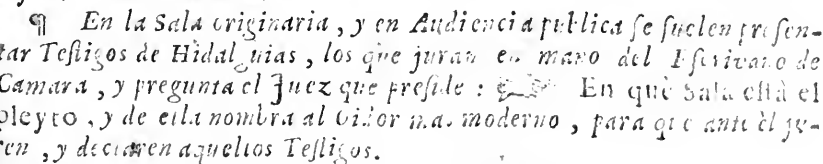 ¶ En la Sala originaria, y en Audiencia publica se suelen presen-
tar Testigos de Hidalguias, los que juran en mano del Escrivano de
Camara, y pregunta el Juez que preside: En què Sala està el
pleyto, y de ella nombra al Oidor mas moderno, para que ante èl ju-
ren, y declaren aquellos Testigos.